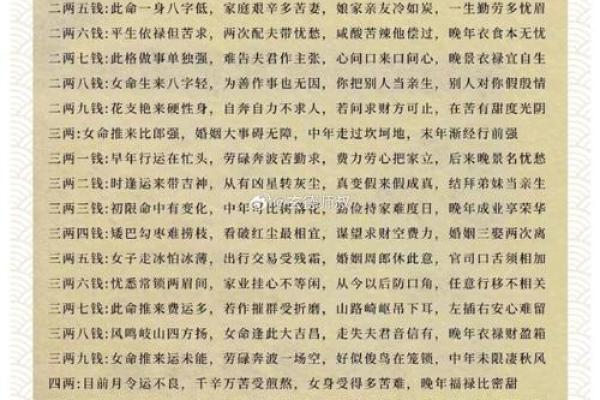 二两五钱:此命一身八字低，家庭艰辛多苦妻，娘家亲友冷如炭，一生勤劳多忧眉
二两六钱:平生依禄但苦求，两次配夫带忧愁，咸酸苦辣他偿过，晚年衣食本无忧
二两七钱:此格做事单独强，难告夫君作主张，心问口来口问心，晚景衣禄宜自生
二两八钱:女命生来八字轻，为善作事也无因，你把别人当亲生，别人对你假殷情
二两九钱:花支艳来硬性身，自奔自力不求人，若问求财方可止，在苦有甜度光阴
三两:女命推来比郎强，婚姻大事碍无障，中年走过坎坷地，末年渐经行前强
三两一钱:早年行运在忙头，劳碌奔波苦勤求，费力劳心把家立，后来晚景名忧愁
三两二钱:时逢运来带吉神，从有凶星转灰尘，真变假来假成真，结拜弟妹当亲生
三两三钱:初限命中有变化，中年可比树落花，勤俭持家难度日，晚年成业享荣华
三两四钱:矮巴勾枣难捞枝，看破红尘最相宜，谋望求财空费力，婚姻三娶两次离
三两五钱:女子走冰怕冰薄，出行交易受残霜，婚姻周郎休此意，官司口舌须相加
三两六钱:忧悉常锁两眉间，家业挂心不等闲，从今以后防口角，任意行移不相关
三两七钱:此命推来费运多，若作摧群受折磨，山路崎岖吊下耳，左插右安心难留
三两八钱:凤鸣岐山四方扬，女命逢此大吉昌，走失夫君音信有，晚年衣禄财盈箱
三两九钱:女命推来运未能，劳碌奔波一场空，好似俊鸟在笼锁，中年未限凄秋风
四两:目前月令运不良，千辛万苦受煎熬，女身受得多苦难，晚年福禄比密甜
@玄德师叔